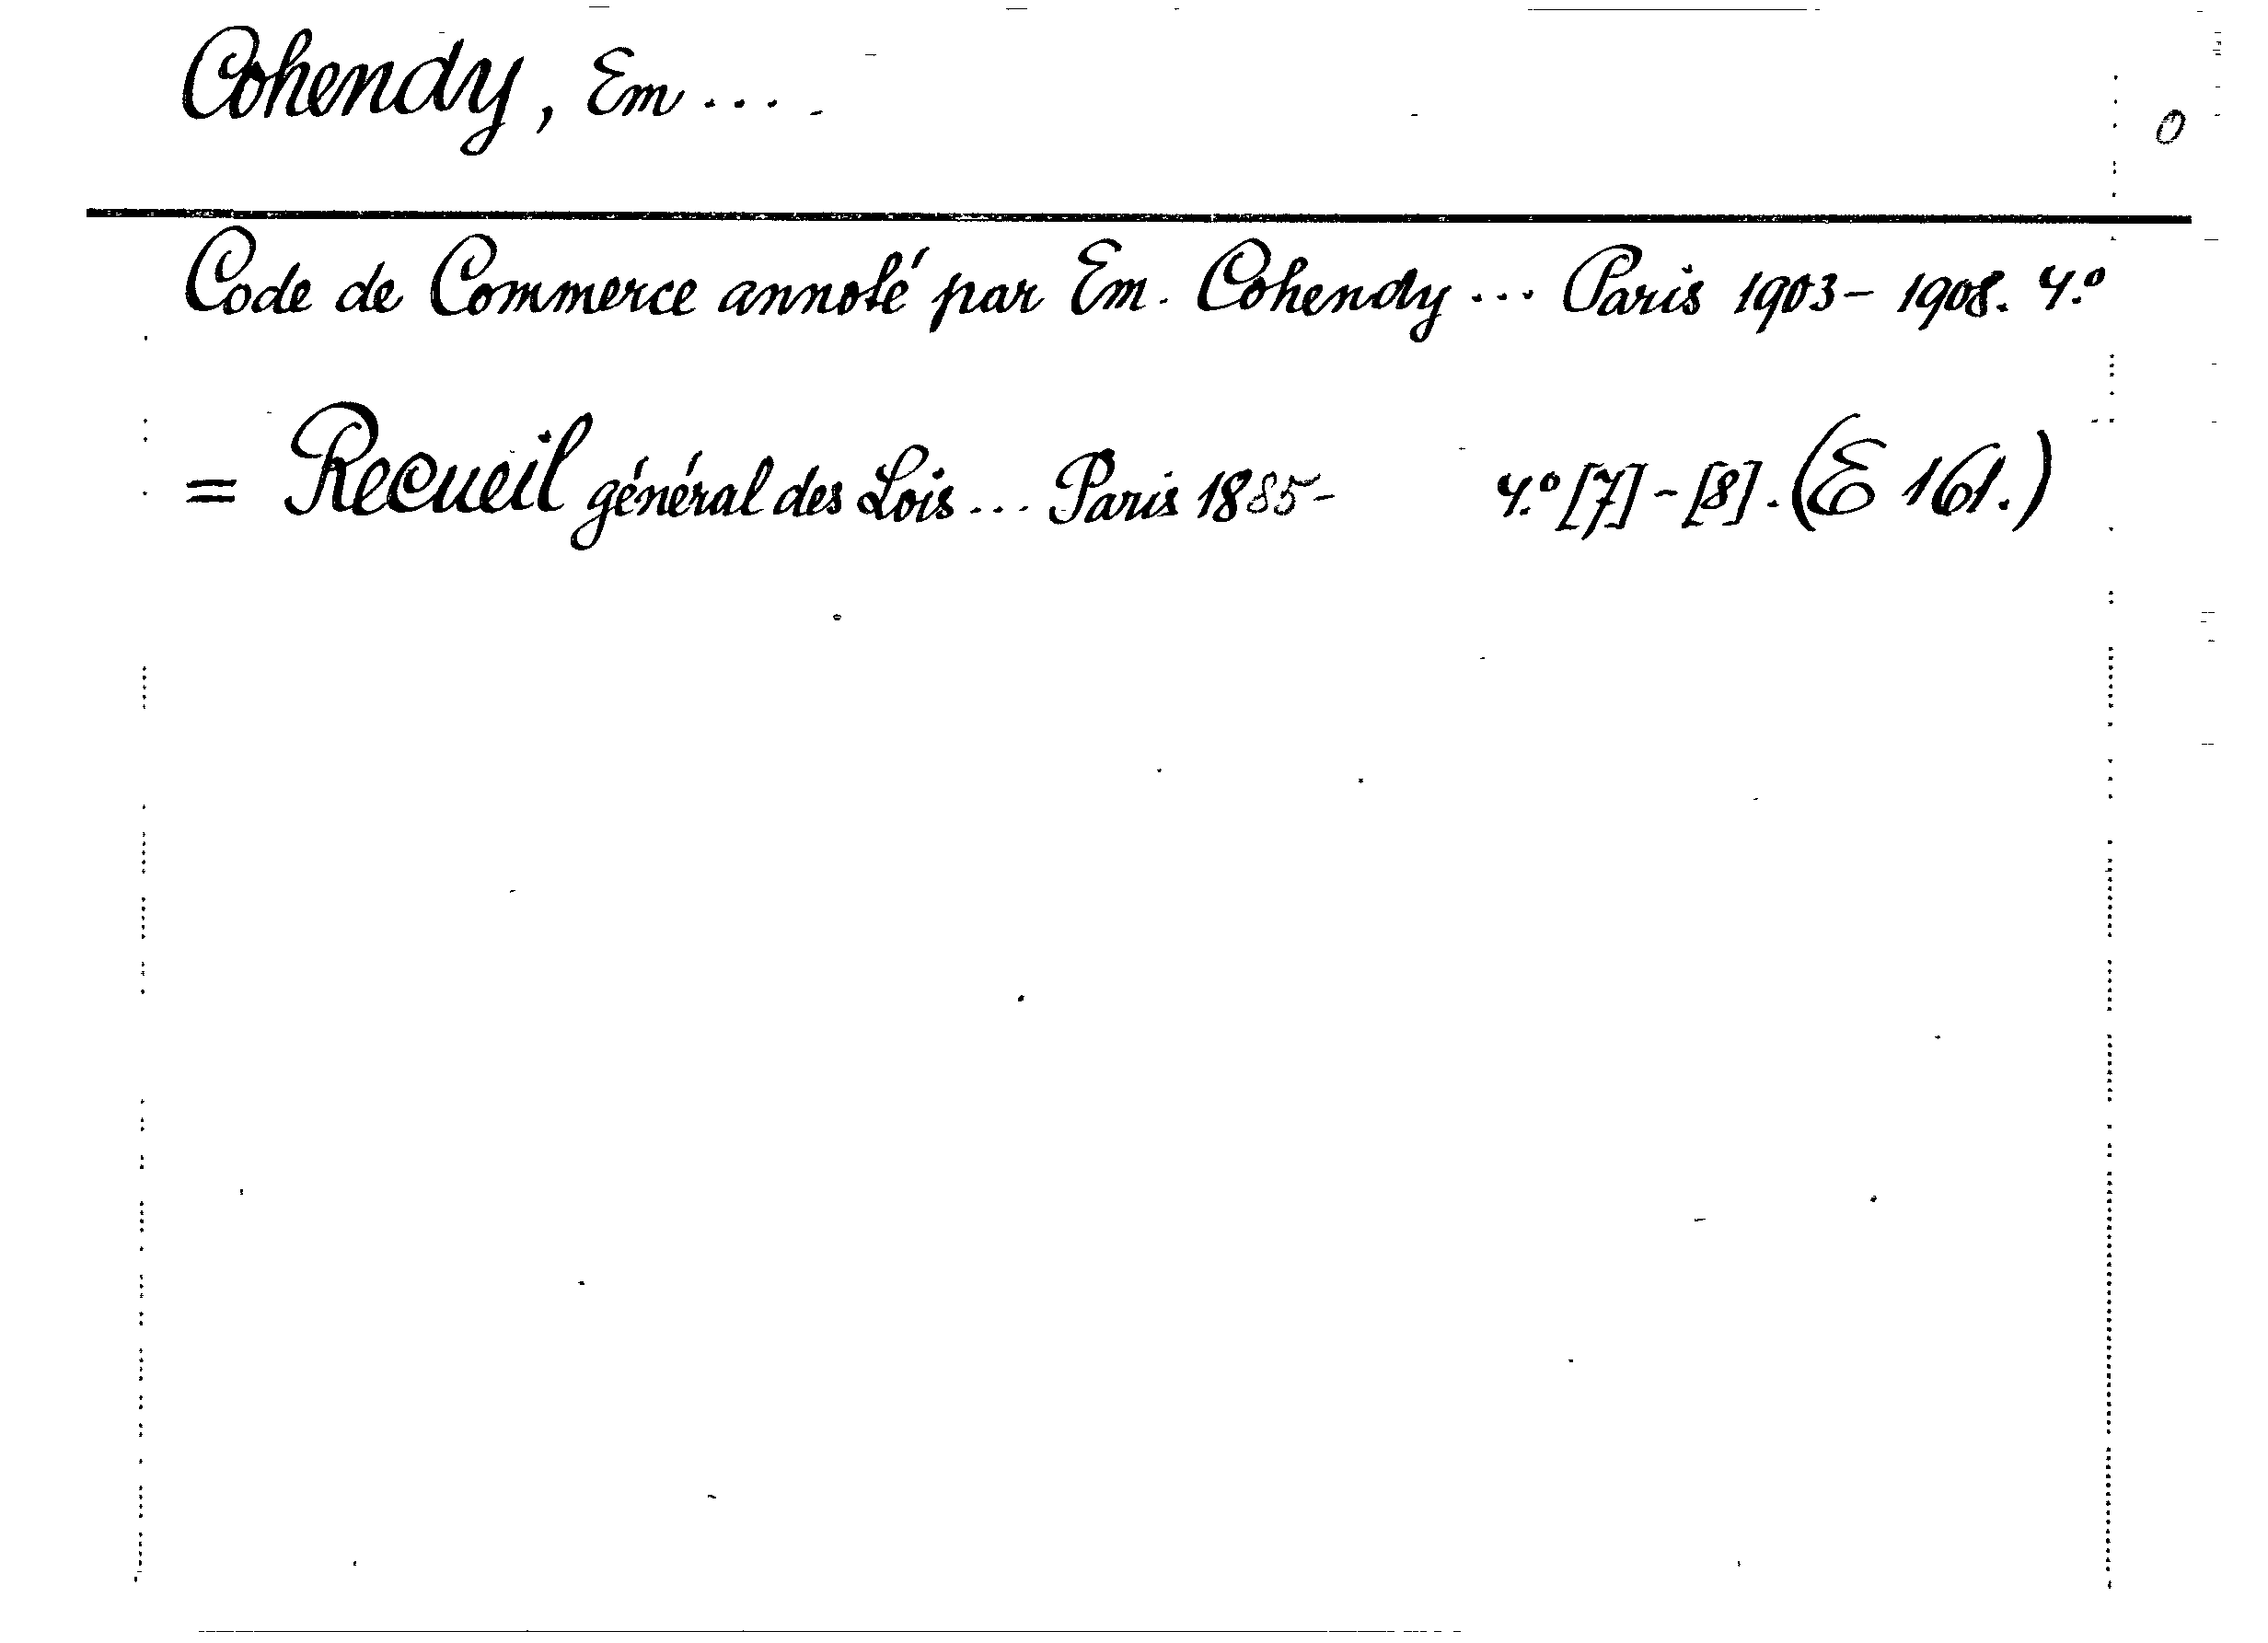 Cohendy, Em ....
0
Code de Commerce annoté par Em. Cohendy ... Paris 1903-1908. 4.º
= Recueil général des Lois ... Paris 1885- 4.º [7]-[8]. (E 161.)